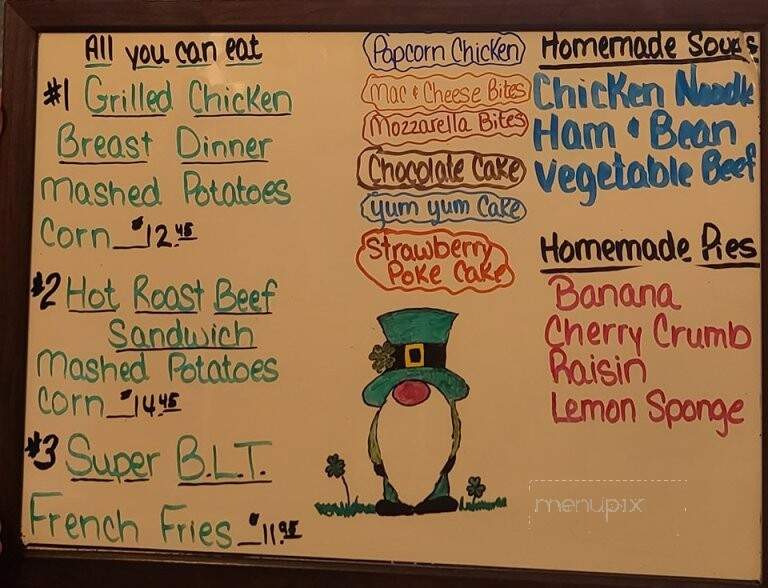 All you can eat
#1 Grilled Chicken
Breast Dinner
mashed Potatoes
Corn $12.45
#2 Hot Roast Beef
Sandwich
Mashed Potatoes
Corn $14.45
#3 Super B.L.T.
French Fries $11.95
Popcorn Chicken
Mac & Cheese Bites
Mozzarella Bites
Chocolate Cake
Yum yum Cake
Strawberry
Poke Cake
Homemade Soups
Chicken Noodle
Ham & Bean
Vegetable Beef
Homemade Pies
Banana
Cherry Crumb
Raisin
Lemon Sponge
menupix